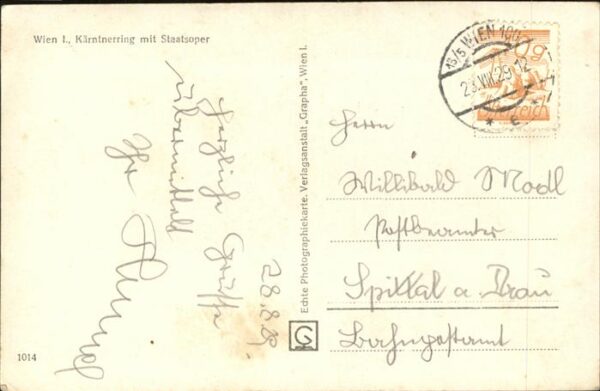 Wien I., Kärntnerring mit Staatsoper
Herzliche Grüße
übermittelt
Ihr
28.8.29.
1014
Echte Photographiekarte. Verlagsanstalt „Grapha", Wien I.
G
15/5 WIEN 100
28.VIII.29 12
Herrn
Willibald Modl
Postbeamter
Spittal a. Drau
Bahnpostamt